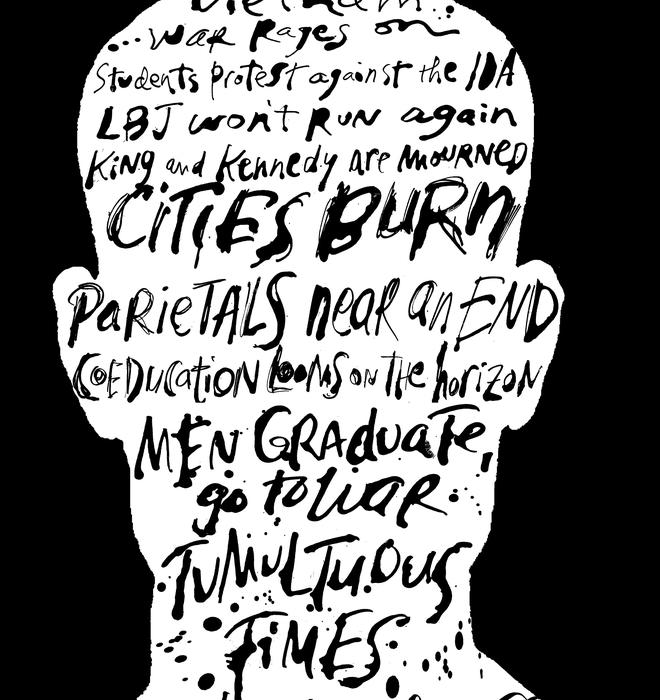 Vietnam
...war Rages on
Students protest against the IDA
LBJ won't RUN again
King and Kennedy are MOURNED
CITIES BURN
Parietals near an END
Coeducation Looms on the horizon
MEN GRaduate,
go to war.
TUMULTUOUS
TIMES